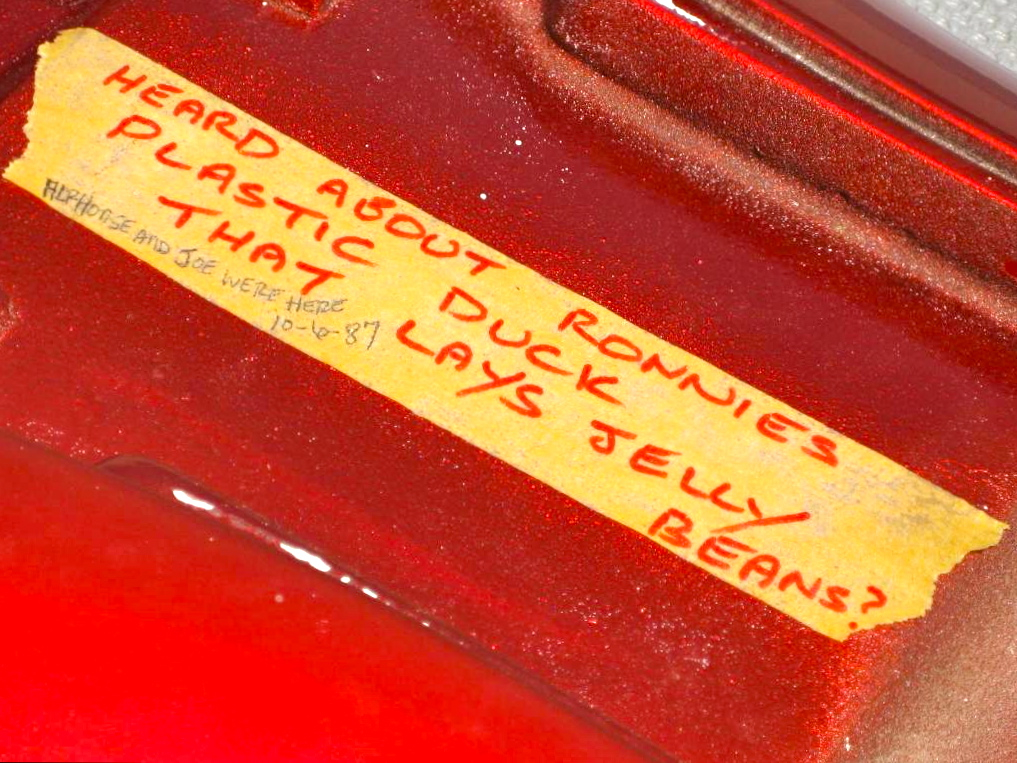 HEARD ABOUT RONNIES
PLASTIC DUCK
THAT LAYS JELLY
BEANS?
AND JOE WERE HERE
10-6-87